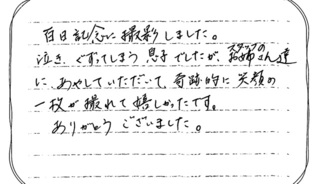 百日記念に撮影しました。
泣き、ぐずってしまう息子でしたが、スタッフのお姉さん達
に、あやしていただいて、奇跡的に笑顔の
一枚が撮れて嬉しかったです。
ありがとうございました。